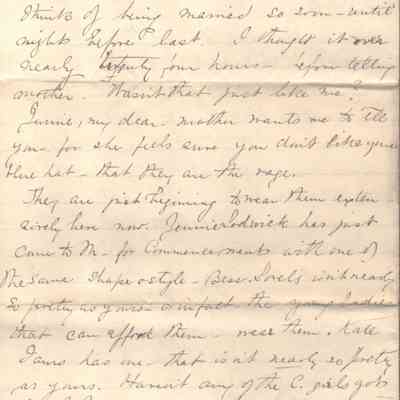 think of being married so soon - until
nights before last. I thought it over
nearly twenty four hours - before telling
mother. Wasn't that just like me?
Jennie, my dear - mother wants me to tell
you - for she feels sure you don't like your
blue hat - that they are the rage.
They are just beginning to wear them exten-
sively here now. Jennie has just
come to M - for Commencements with one of
the same shape & style - Bess isn't nearly
so pretty as yours - in fact the young ladies
that can afford them - wear them. Kate
has one - that isn't nearly so pretty
as yours. Haven't any of the C. girls got